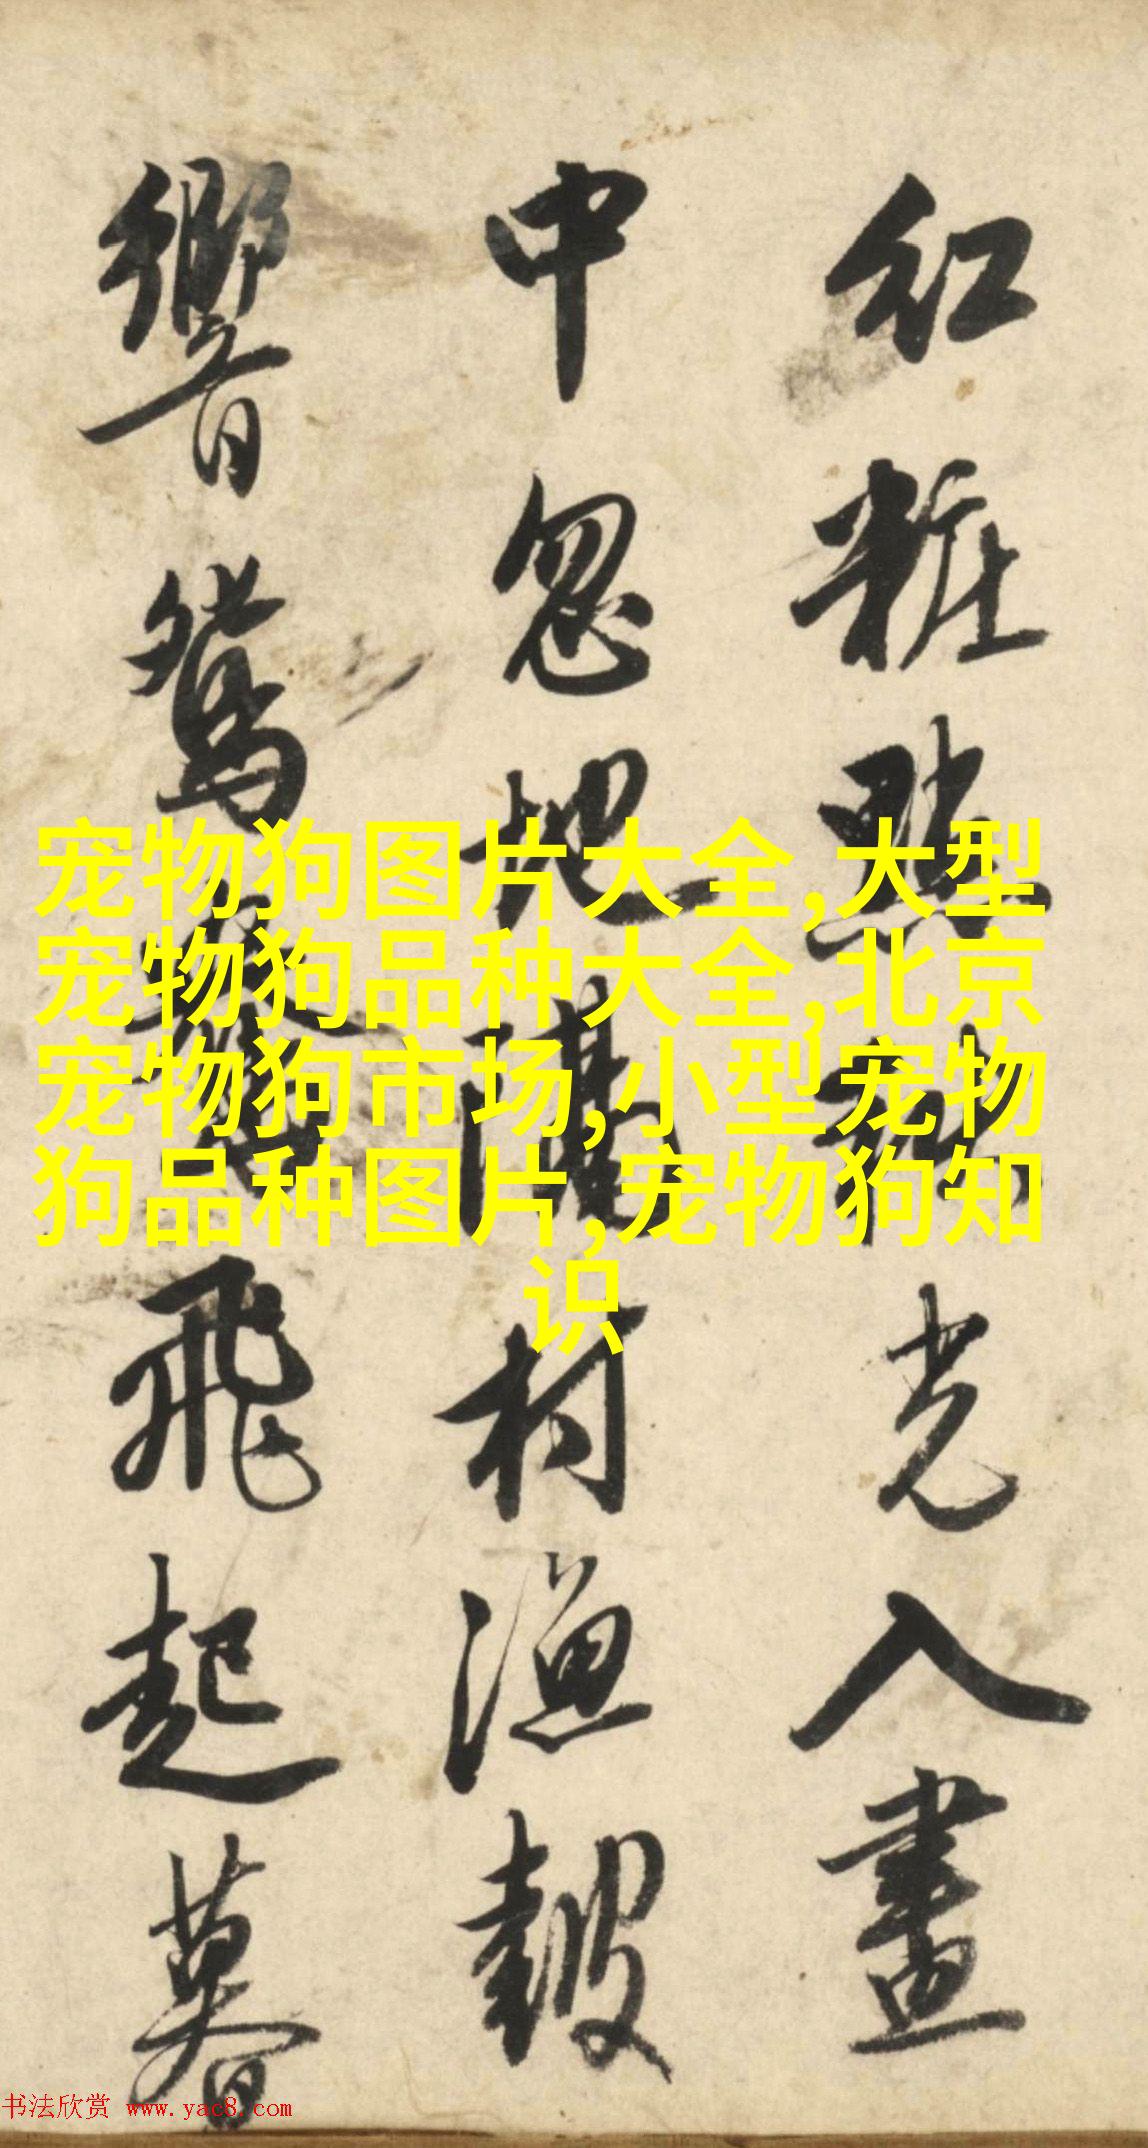 红粧點秋光入畫
中忽地隔村漁鼓
響鴛鴦飛起暮
宠物狗图片大全,大型
宠物狗品种大全,北京
宠物狗市场,小型宠物
狗品种图片,宠物狗知
识
书法欣赏 www.yac8.com